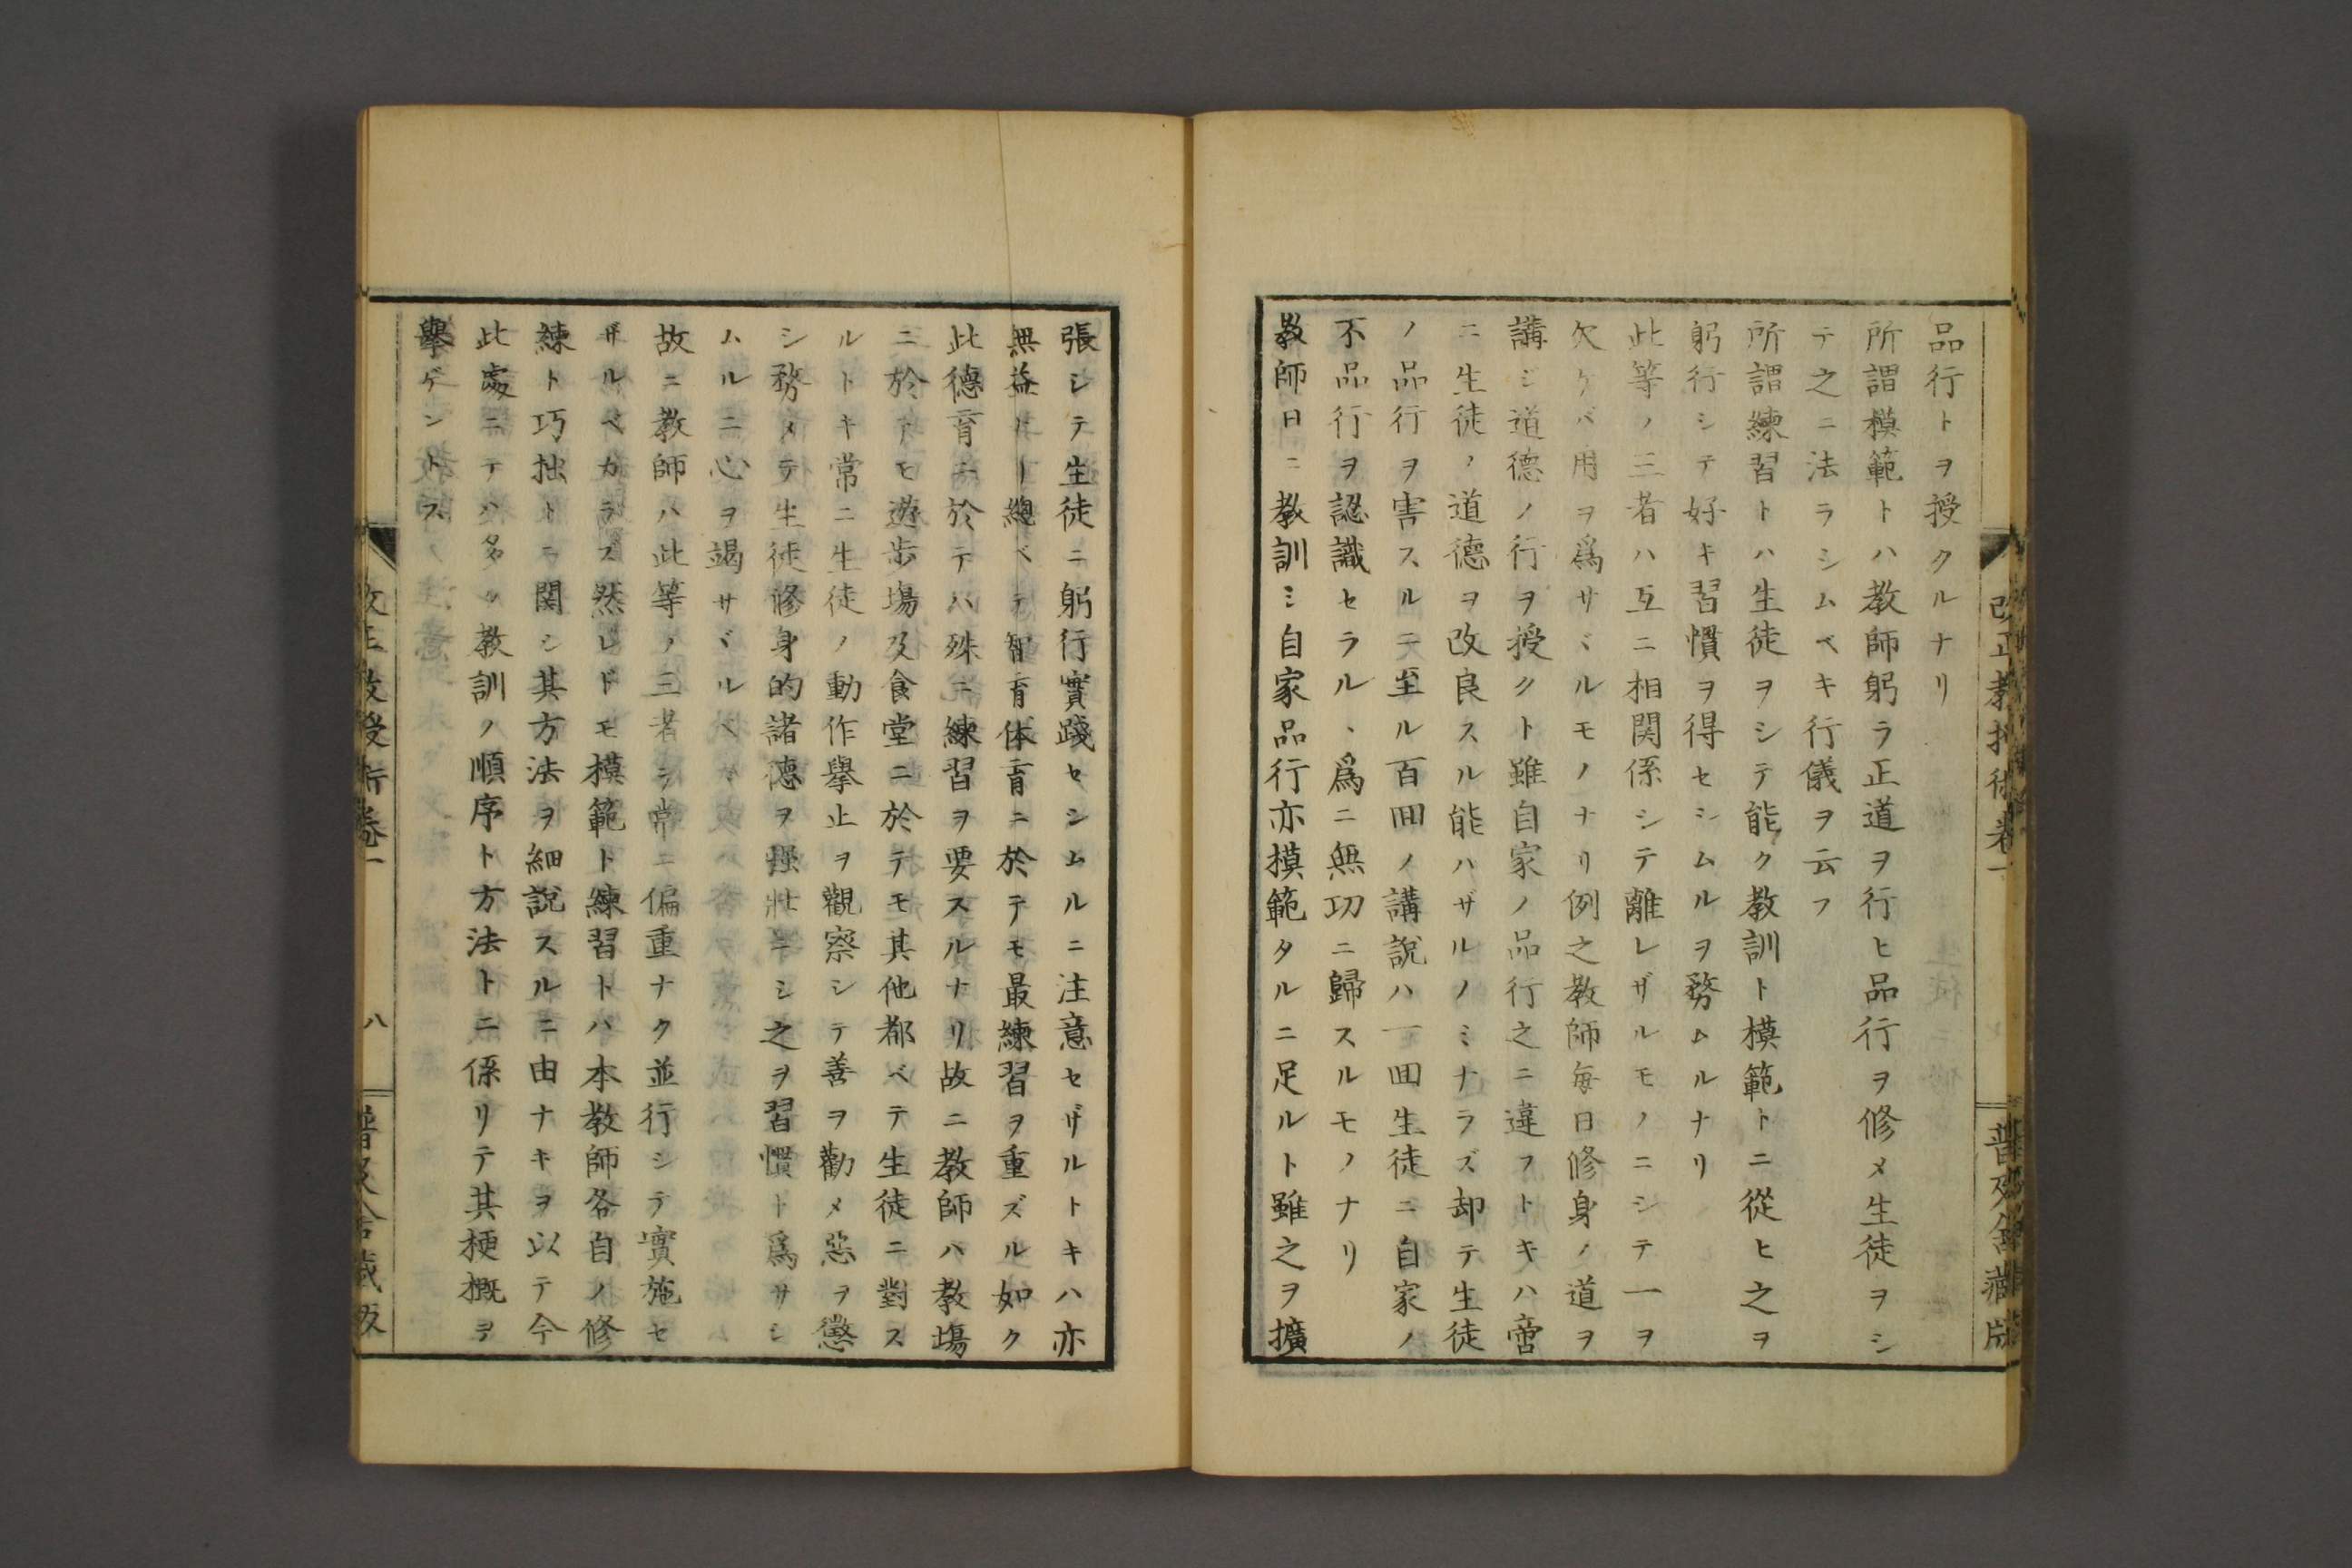 改正教授術卷一
普及舎藏版
品行トヲ授クルナリ
所謂模範トハ教師躬ラ正道ヲ行ヒ品行ヲ修メ生徒ヲシ
テ之ニ法ラシムベキ行儀ヲ云フ
所謂練習トハ生徒ヲシテ能ク教訓ト模範トニ從ヒ之ヲ
躬行シテ好キ習慣ヲ得セシムルヲ務ムルナリ
此等ノ三者ハ互ニ相関係シテ離レザルモノニシテ一ヲ
欠ケバ用ヲ爲サヾルモノナリ例之教師毎日修身ノ道ヲ
講ジ道德ノ行ヲ授クト雖自家ノ品行之ニ違フトキハ啻
ニ生徒ノ道德ヲ改良スル能ハザルノミナラズ却テ生徒
ノ品行ヲ害スルニ至ル百回ノ講說ハ一回生徒ニ自家ノ
不品行ヲ認識セラルヽ爲ニ無功ニ歸スルモノナリ
教師日ニ教訓ミ自家品行亦模範タルニ足ルト雖之ヲ擴
張シテ生徒ニ躬行實踐セシムルニ注意セザルトキハ亦
無益ナリ總ベテ智育体育ニ於テモ最練習ヲ重ズル如ク
此德育ニ於テハ殊ニ練習ヲ要スルナリ故ニ教師ハ教塲
ニ於テモ遊歩塲及食堂ニ於テモ其他都ベテ生徒ニ對ス
ルトキ常ニ生徒ノ動作擧止ヲ觀察シテ善ヲ勸メ惡ヲ懲
シ務メテ生徒修身的諸德ヲ强壯ニシ之ヲ習慣ト爲サシ
ムルニ心ヲ竭サヾルベ
故ニ教師ハ此等ノ三者シ常ニ偏重ナク並行シテ實施セ
ザルベカラズ然レドモ模範ト練習トハ本教師各自ノ修
練ト巧拙トニ関シ其方法ヲ細說スルニ由ナキヲ以テ今
此處ニテハ多ク教訓ノ順序ト方法トニ係リテ其梗概ヲ
擧ゲントス
改正教授術卷一
八
普及舎藏版